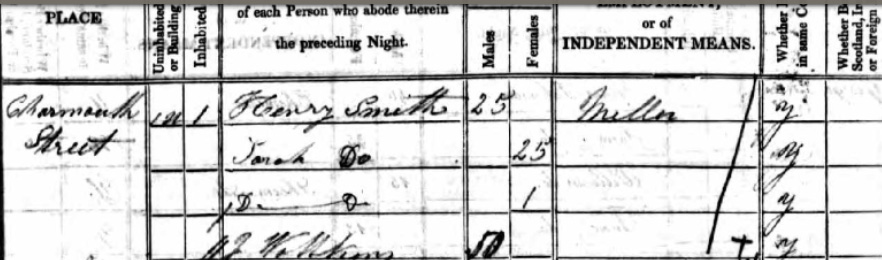 PLACE
Uninhabited or Building
Inhabited
of each Person who abode therein
the preceding Night.
Males
Females
or of
INDEPENDENT MEANS.
Whether
in same Co
Whether B
Scotland, Ir
or Foreign
Charmouth 1 Henry Smith 25 Miller y
Street Sarah Do 25 y
D D 1 y
J Watkins 50 y